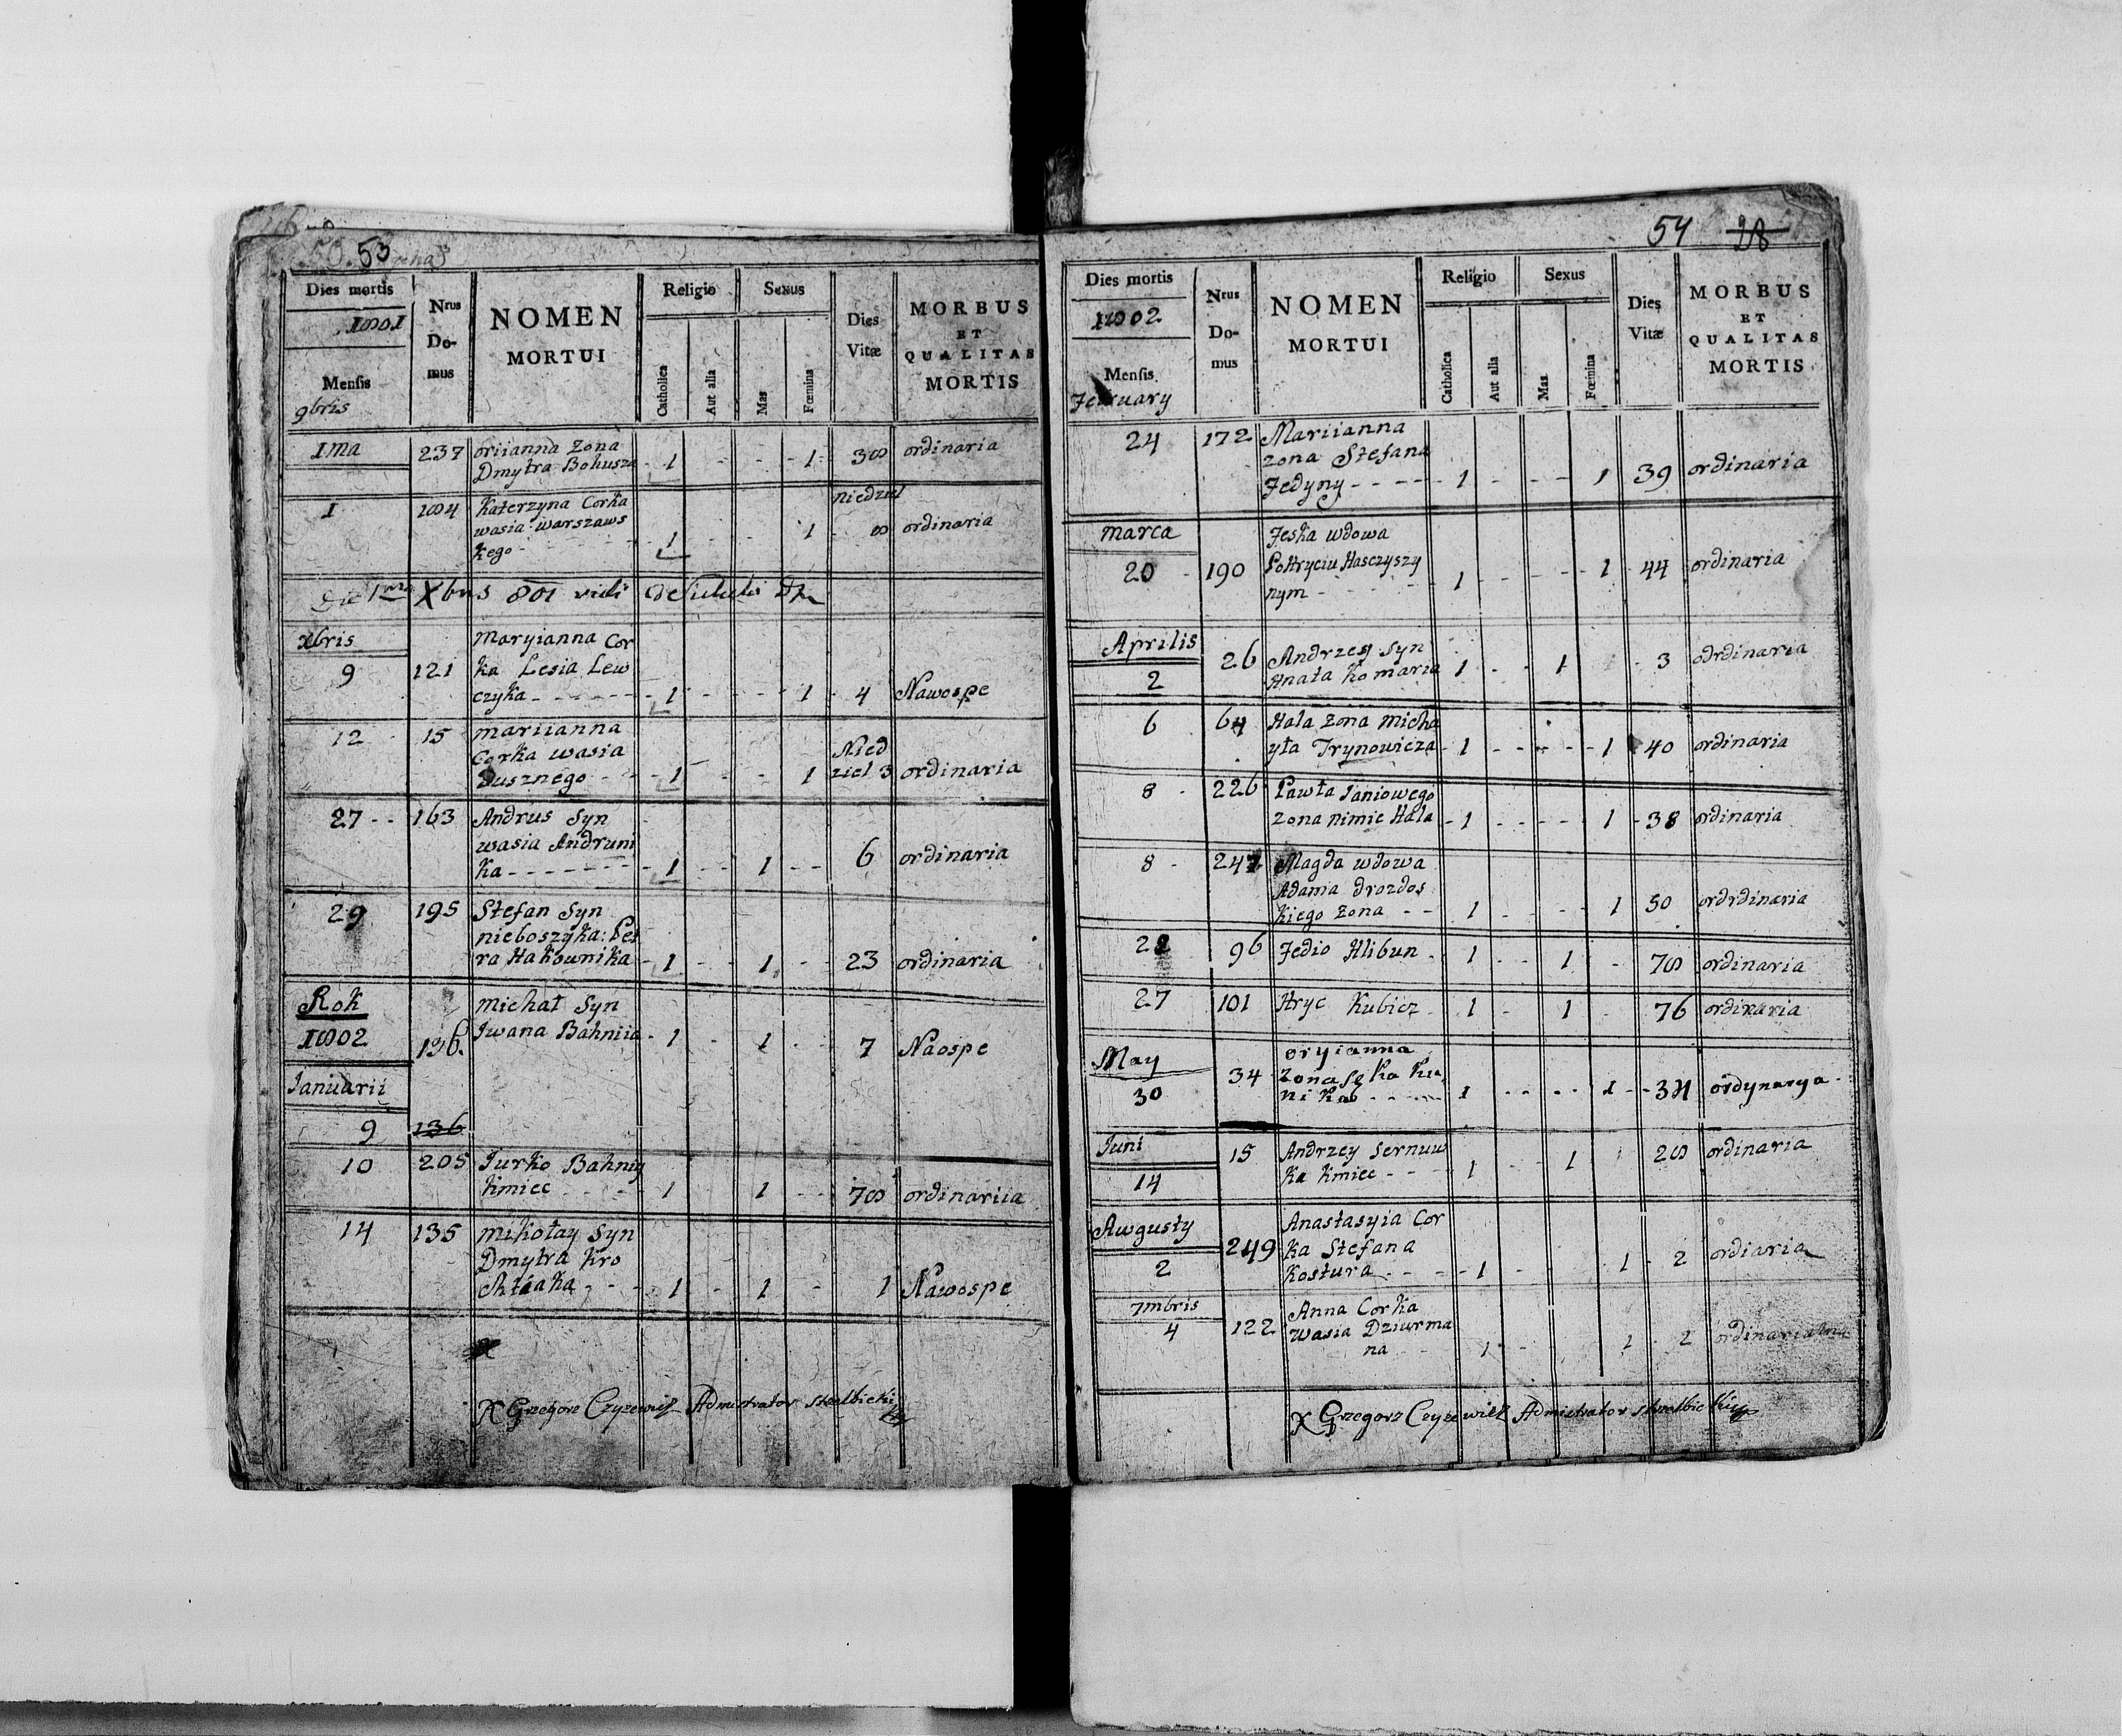 53
Dies mortis
1801
Mensis
9bris
Nrus
Do-
mus
NOMEN
MORTUI
Religio
Catholica
Aut alia
Sexus
Mas
Fœmina
Dies
Vitæ
MORBUS
ET
QUALITAS
MORTIS
1ma 237 oriianna Zona
Dmytra Bohusza - 1 - - - 1 - 38 ordinaria
1 184 Katerzyna Corka niedziel
wasia warszaws
kego - 1 - - - 1 - 8 ordinaria
Die 1ma Xbris 801 vidi
xbris
9 121 Maryianna Cor
ka Lesia Lew
czyka - - - 1 - - - 1 - 4 Nawospe
12 15 mariianna
Corka wasia Nied
Dusznego - - 1 - - 1 ziel 3 ordinaria
27 - - 163 Andrus Syn
wasia Andruni
ka - - - 1 - - 1 - - 6 ordinaria
29 195 Stefan Syn
nieboszyka: Pet
ra Hakownika - 1 - - 1 - - 23 ordinaria
Rok
1802
Januarii
9 136. michał Syn
Iwana Bahniia - 1 - - 1 - - 7 Naospe
136
10 205 Jurko Bahniy
kmiec - - - 1 - 1 - - 78 ordinariia
14 135 mikołay Syn
Dmytra Kro
- - 1 - 1 - 1 Nawospe
X Grzegorz Czyzewicz Admistrator
54 28
Dies mortis
1802
Mensis
February
Nrus
Do-
mus
NOMEN
MORTUI
Religio
Catholica
Aut alia
Sexus
Mas
Fœmina
Dies
Vitæ
MORBUS
ET
QUALITAS
MORTIS
24 172 Mariianna
zona Stefana
Fedyny - - - - 1 - - - 1 39 ordinaria
marca
20 190 Feska wdowa
Pohryciu Hasczyszy
nym - - 1 - - - - 1 - 44 ordinaria
Aprilis
2 26 Andrzey Syn
Anata Komaria 1 - - 1 - 3 odrdinaria
6 64 Hala zona micha
yła Trynowicza - 1 - - - - 1 40 ordinaria
8 - 226 Pawła Janiowego
zona nimie Hala - 1 - - - - 1 - 38 ordinaria
8 - 247 Magda wdowa
Adama drozdos
kiego zona - - 1 - - - 1 50 ordrdinaria
22 96 Fedio Hlibun - 1 - - 1 - 78 ordinaria
27 101 Hryc Kubicz - 1 - 1 - 76 ordinaria
May
30 34 oryianna
zona
- - - 1 - - - - 1 - - 34 ordynarya -
Juni
14 15 Andrzey Sernuw
ka kmiec - - - 1 - - 1 28 ordinaria
Awgusty
2 249 Anastasyia Cor
ka Stefana
Kostura - - - - 1 - 1 - 2 ordiaria
7mbris
4 122 Anna Corka
wasia Dziurma
na 1 - 1 - 2
X Grzegorz Czyzewicz Admistrator